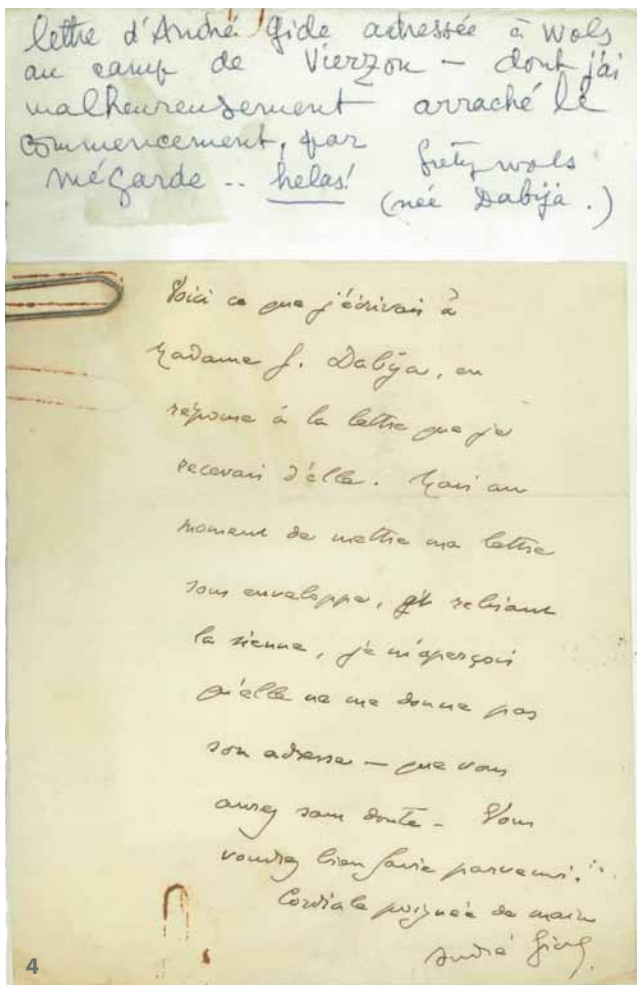 lettre d'André Gide adressée à Wols
au camp de Vierzon – dont j'ai
malheureusement arraché le
commencement, par
mégarde .. hélas!
Grety Wols
(née Dabija.)
Voici ce que j'écrivais à
Madame G. Dabija, en
réponse à la lettre que je
recevais d'elle. Mais au
moment de mettre ma lettre
sous enveloppe, et relisant
la sienne, je m'aperçois
qu'elle ne me donne pas
son adresse – que vous
aurez sans doute – Vous
voudrez bien faire parvenir.
Cordiale poignée de main
André Gide.
4